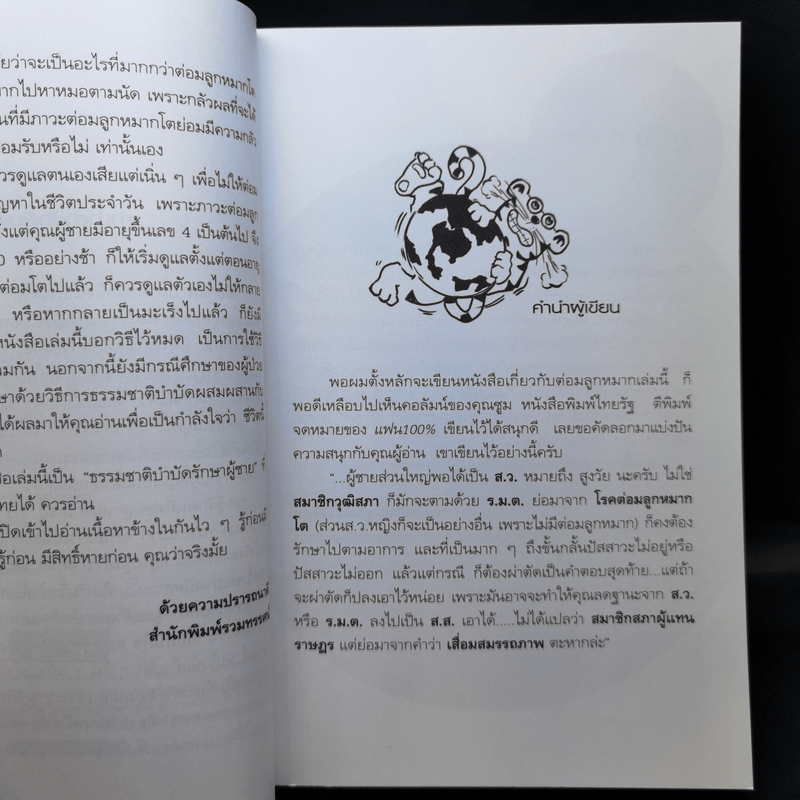 ว่าจะเป็นอะไรที่มากกว่าต่อมลูกหมากโต
ากไปหาหมอตามนัด เพราะกลัวผลที่จะได้
นที่มีภาวะต่อมลูกหมากโตย่อมมีความกลัว
อมรับหรือไม่ เท่านั้นเอง
วรดูแลตนเองเสียแต่เนิ่น ๆ เพื่อไม่ให้ต่อม
ญหาในชีวิตประจำวัน เพราะภาวะต่อมลูก
ั้งแต่คุณผู้ชายมีอายุขึ้นเลข 4 เป็นต้นไป จึง
0 หรืออย่างช้า ก็ให้เริ่มดูแลตั้งแต่ตอนอายุ
ต่อมโตไปแล้ว ก็ควรดูแลตัวเองไม่ให้กลาย
หรือหากกลายเป็นมะเร็งไปแล้ว ก็ยังมี
หนังสือเล่มนี้บอกวิธีไว้หมด เป็นการใช้วิธี
มกัน นอกจากนี้ยังมีกรณีศึกษาของผู้ป่วย
ษาด้วยวิธีการธรรมชาติบำบัดผสมผสานกับ
ได้ผลมาให้คุณอ่านเพื่อเป็นกำลังใจว่า ชีวิตนี้
อเล่มนี้เป็น "ธรรมชาติบำบัดรักษาผู้ชาย" ที่
ทยได้ ควรอ่าน
ปิดเข้าไปอ่านเนื้อหาข้างในกันไว ๆ รู้ก่อนมี
รู้ก่อน มีสิทธิ์หายก่อน คุณว่าจริงมั้ย
ด้วยความปรารถนาดี
สำนักพิมพ์รวมทรรศน์
คำนำผู้เขียน
พอผมตั้งหลักจะเขียนหนังสือเกี่ยวกับต่อมลูกหมากเล่มนี้ ก็
พอดีเหลือบไปเห็นคอลัมน์ของคุณซูม หนังสือพิมพ์ไทยรัฐ ตีพิมพ์
จดหมายของ แฟน100% เขียนไว้ได้สนุกดี เลยขอคัดลอกมาแบ่งปัน
ความสนุกกับคุณผู้อ่าน เขาเขียนไว้อย่างนี้ครับ
"...ผู้ชายส่วนใหญ่พอได้เป็น ส.ว. หมายถึง สูงวัย นะครับ ไม่ใช่
สมาชิกวุฒิสภา ก็มักจะตามด้วย ร.ม.ต. ย่อมาจาก โรคต่อมลูกหมาก
โต (ส่วนส.ว.หญิงก็จะเป็นอย่างอื่น เพราะไม่มีต่อมลูกหมาก) ก็คงต้อง
รักษาไปตามอาการ และที่เป็นมาก ๆ ถึงขั้นกลั้นปัสสาวะไม่อยู่หรือ
ปัสสาวะไม่ออก แล้วแต่กรณี ก็ต้องผ่าตัดเป็นคำตอบสุดท้าย...แต่ถ้า
จะผ่าตัดก็ปลงเอาไว้หน่อย เพราะมันอาจจะทำให้คุณลดฐานะจาก ส.ว.
หรือ ร.ม.ต. ลงไปเป็น ส.ส. เอาได้.....ไม่ได้แปลว่า สมาชิกสภาผู้แทน
ราษฎร แต่ย่อมาจากคำว่า เสื่อมสมรรถภาพ ตะหากล่ะ"